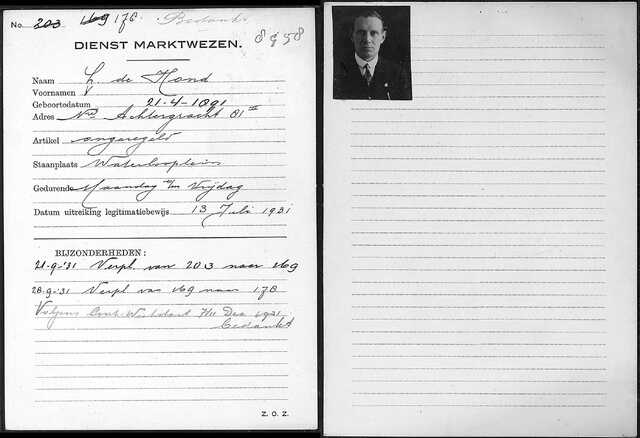 No. 203 169 178 Bedankt
8958
DIENST MARKTWEZEN.
Naam L. de Hond
Voornamen
Geboortedatum 21-4-1891
Adres Nwe Achtergracht 81 II
Artikel ongeregeld
Staanplaats Waterlooplein
Gedurende Maandag t/m Vrijdag
Datum uitreiking legitimatiebewijs 13 Juli 1931
BIJZONDERHEDEN:
21-9-'31 Verpl. van 203 naar 169
28-9-'31 Verpl van 169 naar 178
Volgens Dec 1931
bedankt
Z. O. Z.